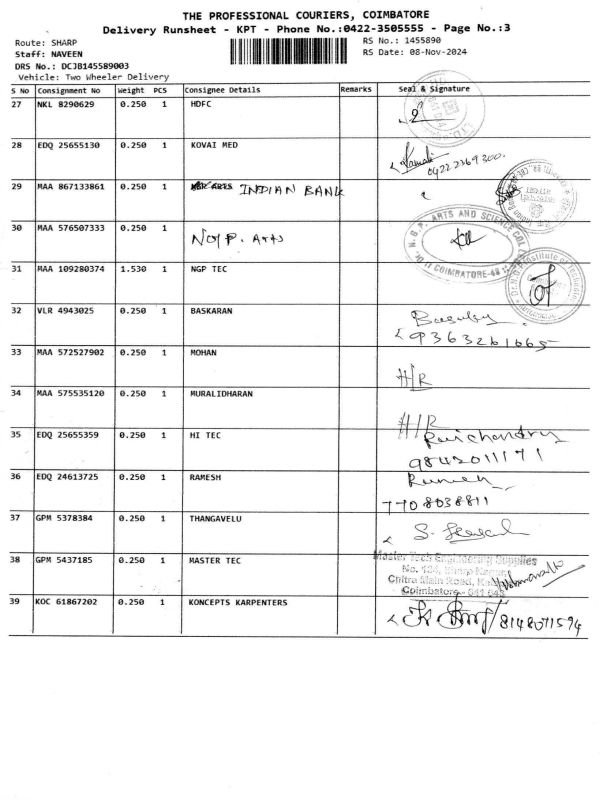 THE PROFESSIONAL COURIERS, COIMBATORE
Delivery Runsheet - KPT - Phone No.:0422-3505555 - Page No.:3
Route: SHARP
RS No.: 1455890
Staff: NAVEEN
RS Date: 08-Nov-2024
DRS No.: DCJB145589003
Vehicle: Two Wheeler Delivery
S No Consignment No Weight PCS Consignee Details Remarks Seal & Signature
27 NKL 8290629 0.250 1 HDFC
28 EDQ 25655130 0.250 1 KOVAI MED
04222369300.
29 MAA 867133861 0.250 1 INDIAN BANK
30 MAA 576507333 0.250 1 NGP. Arts
N. G. P. ARTS AND SCIENCE COL
COIMBATORE-48
31 MAA 109280374 1.530 1 NGP TEC
Institute of Technology
32 VLR 4943025 0.250 1 BASKARAN
9363261665
33 MAA 572527902 0.250 1 MOHAN
H/R
34 MAA 575535120 0.250 1 MURALIDHARAN
H/R
35 EDQ 25655359 0.250 1 HI TEC
Ravichandran
9842011171
36 EDQ 24613725 0.250 1 RAMESH
7708038811
37 GPM 5378384 0.250 1 THANGAVELU
38 GPM 5437185 0.250 1 MASTER TEC
Master Tech Engineering Supplies
No. 134, Sharp Nagar,
Chitra Main Road,
Coimbatore - 641 048
39 KOC 61867202 0.250 1 KONCEPTS KARPENTERS
8148071594